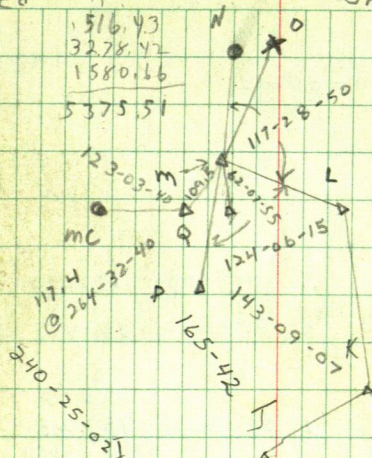 516.43
3278.42
1580.66
5375.51
N
O
117-28-50
123-03-40
m
109.5
62-07-55
L
MC
Q
124-06-15
117.4
@ 264-32-40
P
143-09-07
165-42
K
240-25-02
J
I